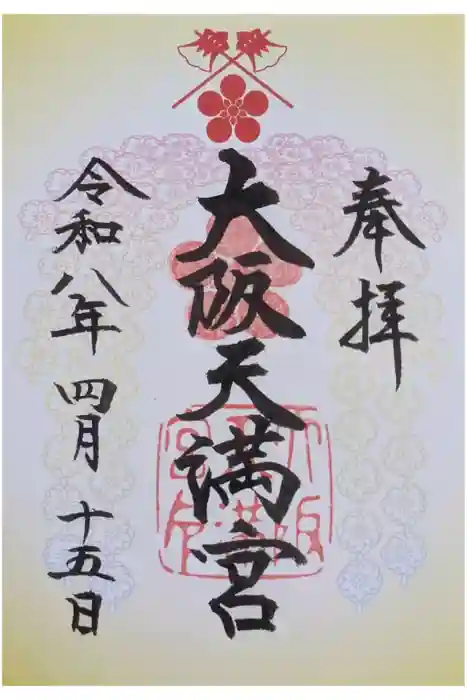 奉拝
大阪天満宮
令和八年四月十五日